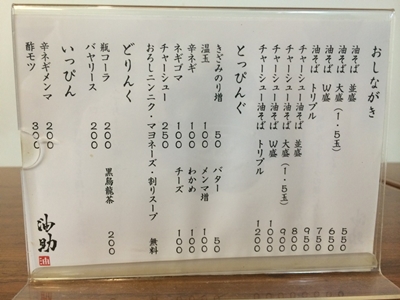 おしながき
油そば 並盛 550
油そば 大盛(1.5玉) 550
油そば W盛 650
油そば トリプル 750
チャーシュー油そば 並盛 800
チャーシュー油そば 大盛(1.5玉) 800
チャーシュー油そば W盛 1000
チャーシュー油そば トリプル 1200
とっぴんぐ
きざみのり増 50
バター 50
温玉 100
メンマ増 100
辛ネギ 100
わかめ 100
ネギゴマ 100
チーズ 100
チャーシュー 250
おろしニンニク・マヨネーズ・割りスープ 無料
どりんく
瓶コーラ 200
黒烏龍茶 200
バヤリース 200
いっぴん
辛ネギメンマ 200
酢モツ 300
油